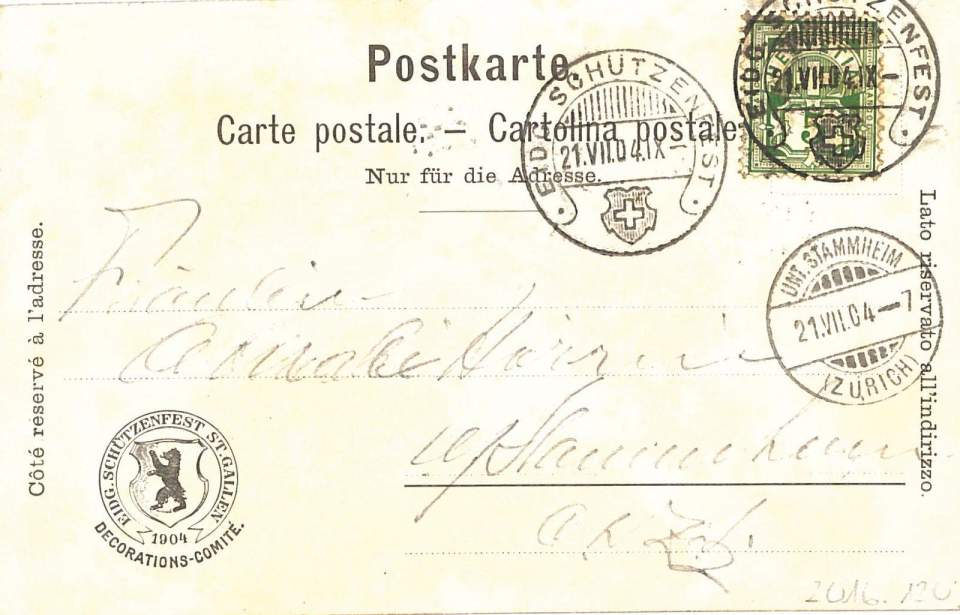 Postkarte.
Carte postale. – Cartolina postale.
Nur für die Adresse.
EIDG. SCHÜTZENFEST
21.VII.04.IX–
HELVETIA
5
EIDG. SCHÜTZENFEST
21.VII.04.IX–
UNT. STAMMHEIM
21.VII.04–7
(ZÜRICH)
Côté réservé à l'adresse.
Lato riservato all'indirizzo.
Fräulein
Stammheim
EIDG. SCHÜTZENFEST ST. GALLEN
1904
DECORATIONS-COMITÉ.
2016.120